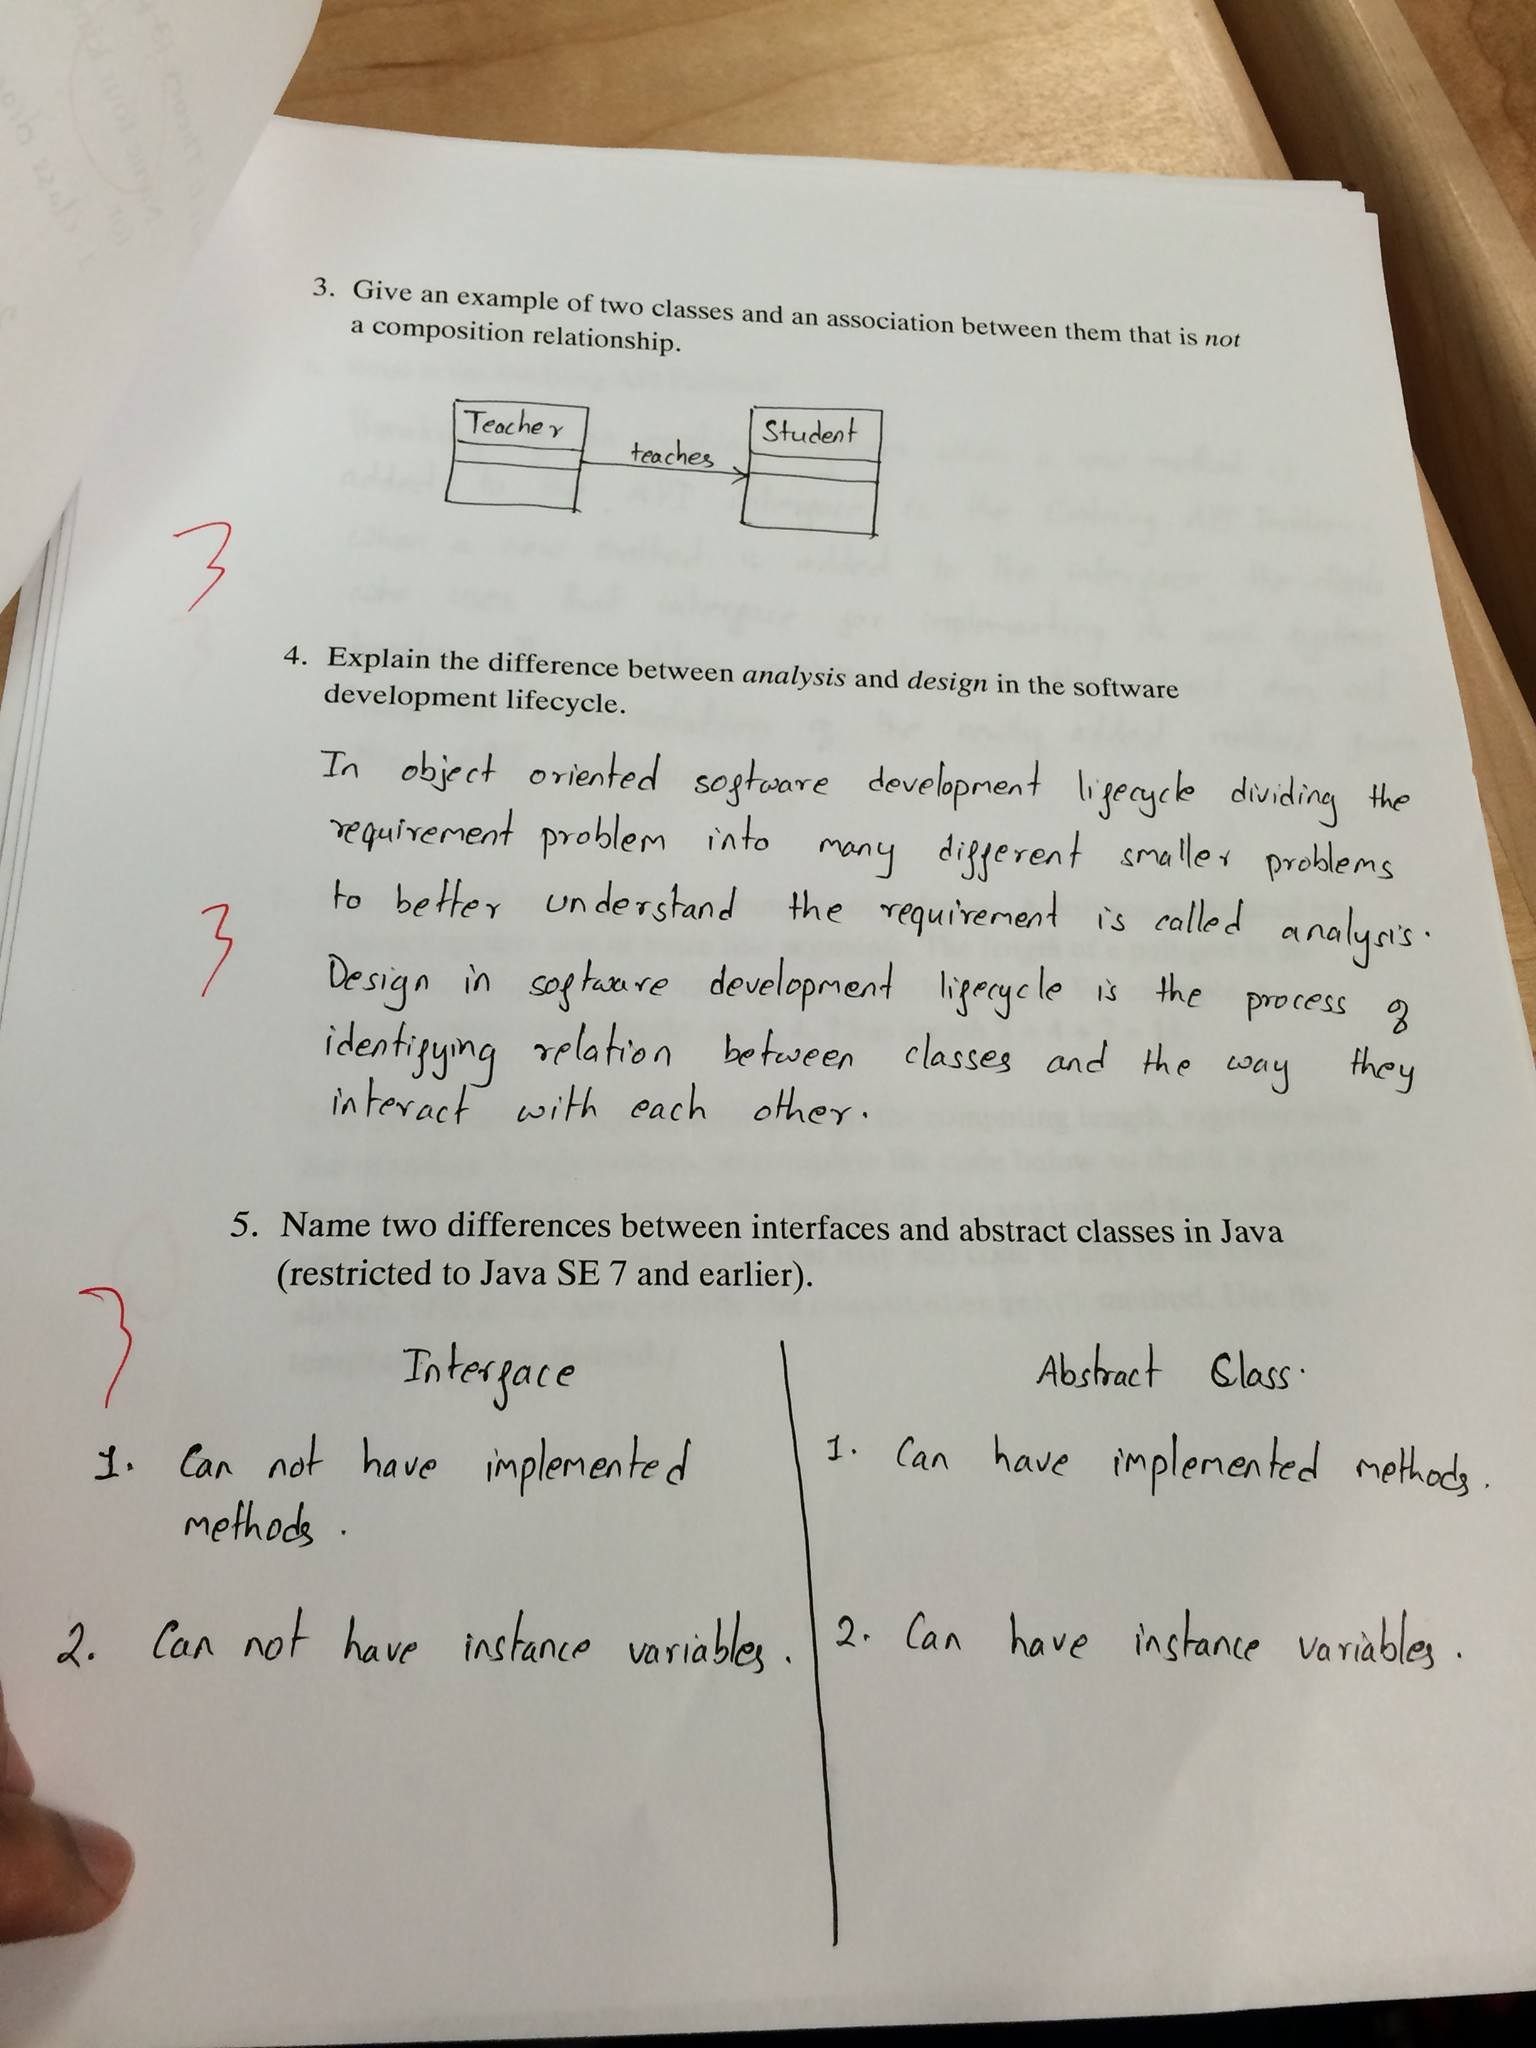 3. Give an example of two classes and an association between them that is not
a composition relationship.
Teacher
teaches
Student
3
4. Explain the difference between analysis and design in the software
development lifecycle.
In object oriented software development lifecycle dividing the
requirement problem into many different smaller problems
to better understand the requirement is called analysis.
3
Design in software development lifecycle is the process of
identifying relation between classes and the way they
interact with each other.
5. Name two differences between interfaces and abstract classes in Java
(restricted to Java SE 7 and earlier).
3
Interface
Abstract Class.
1. Can not have implemented
methods.
1. Can have implemented methods.
2. Can not have instance variables.
2. Can have instance variables.